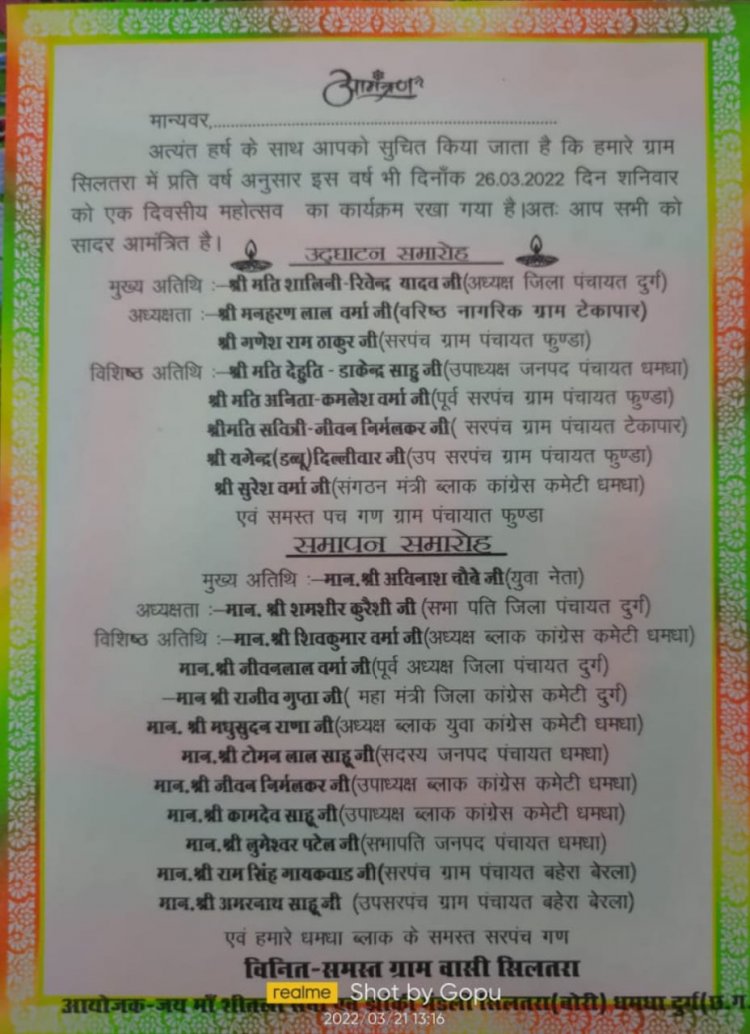 आमंत्रण
मान्यवर,.......................................................................
अत्यंत हर्ष के साथ आपको सुचित किया जाता है कि हमारे ग्राम
सिलतरा में प्रति वर्ष अनुसार इस वर्ष भी दिनाँक 26.03.2022 दिन शनिवार
को एक दिवसीय महोत्सव का कार्यक्रम रखा गया है।अतः आप सभी को
सादर आमंत्रित है।
उद्घाटन समारोह
मुख्य अतिथि :–श्री मति शालिनी-रिवेन्द्र यादव जी(अध्यक्ष जिला पंचायत दुर्ग)
अध्यक्षता :–श्री मनहरण लाल वर्मा जी(वरिष्ठ नागरिक ग्राम टेकापार)
श्री गणेश राम ठाकुर जी(सरपंच ग्राम पंचायत फुण्डा)
विशिष्ठ अतिथि :–श्री मति देहुति - डाकेन्द्र साहु जी(उपाध्यक्ष जनपद पंचायत धमधा)
श्री मति अनिता-कमलेश वर्मा जी(पूर्व सरपंच ग्राम पंचायत फुण्डा)
श्रीमति सवित्री-जीवन निर्मलकर जी( सरपंच ग्राम पंचायत टेकापार)
श्री यगेन्द्र(डब्बू)दिल्लीवार जी(उप सरपंच ग्राम पंचायत फुण्डा)
श्री सुरेश वर्मा जी(संगठन मंत्री ब्लाक कांग्रेस कमेटी धमधा)
एवं समस्त पच गण ग्राम पंचायात फुण्डा
समापन समारोह
मुख्य अतिथि :–मान.श्री अविनाश चौबे जी(युवा नेता)
अध्यक्षता :–मान. श्री शमशीर कुरैशी जी (सभा पति जिला पंचायत दुर्ग)
विशिष्ठ अतिथि :–मान.श्री शिवकुमार वर्मा जी(अध्यक्ष ब्लाक कांग्रेस कमेटी धमधा)
मान.श्री जीवनलाल वर्मा जी(पूर्व अध्यक्ष जिला पंचायत दुर्ग)
–मान श्री राजीव गुप्ता जी( महा मंत्री जिला कांग्रेस कमेटी दुर्ग)
मान. श्री मधुसुदन राणा जी(अध्यक्ष ब्लाक युवा कांग्रेस कमेटी धमधा)
मान.श्री टोमन लाल साहू जी(सदस्य जनपद पंचायत धमधा)
मान.श्री जीवन निर्मलकर जी(उपाध्यक्ष ब्लाक कांग्रेस कमेटी धमधा)
मान.श्री कामदेव साहू जी(उपाध्यक्ष ब्लाक कांग्रेस कमेटी धमधा)
मान.श्री लुमेश्वर पटेल जी(सभापति जनपद पंचायत धमधा)
मान.श्री राम सिंह गायकवाड जी(सरपंच ग्राम पंचायत बहेरा बेरला)
मान.श्री अमरनाथ साहू जी (उपसरपंच ग्राम पंचायत बहेरा बेरला)
एवं हमारे धमधा ब्लाक के समस्त सरपंच गण
विनित-समस्त ग्राम वासी सिलतरा
आयोजक-जय माँ शीतला सिलतरा(बोरी) धमधा दुर्ग(छ.ग
realme Shot by Gopu
2022/03/21 13:16